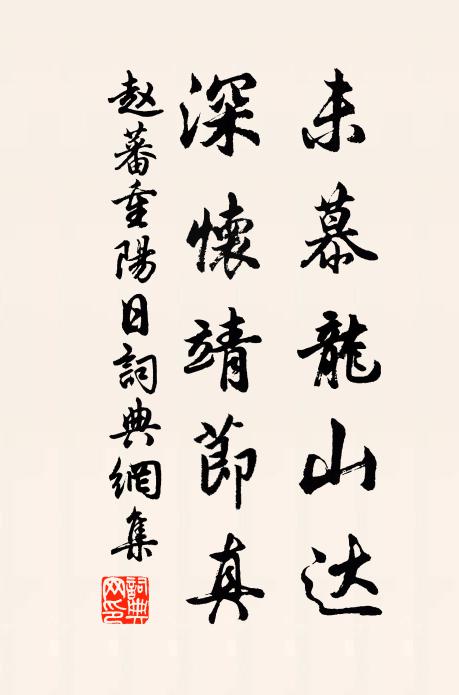 未慕龍山达
深懷靖節真
赵蕃重陽日詞典網集
詞典網印